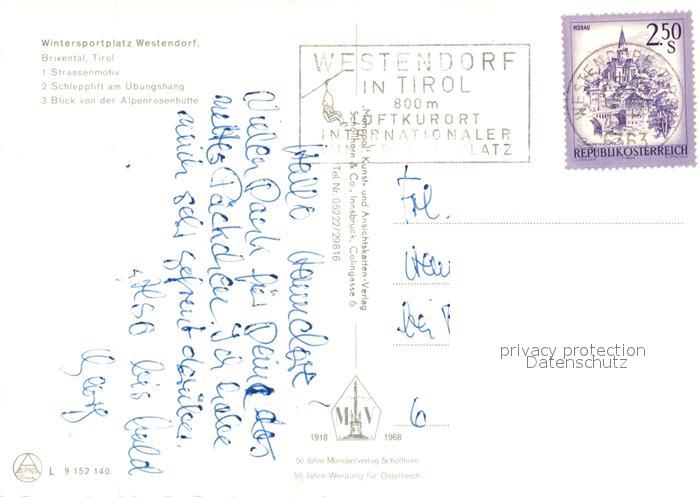 Wintersportplatz Westendorf,
Brixental, Tirol
1 Strassenmotiv
2 Schlepplift am Übungshang
3 Blick von der Alpenrosenhütte
WESTENDORF
IN TIROL
800m
LUFTKURORT
INTERNATIONALER
PLATZ
MURAU
2.50
S
WESTENDORF
6363
REPUBLIK ÖSTERREICH
Hallo
Vielen Dank für Deine das
nettes Päckchen. Ich habe
mich sehr gefreut darüber.
Also bis bald
"Monopol" Kunst- und Ansichtskarten-Verlag
Schöllhorn & Co., Innsbruck, Colingasse 6
Tel. Nr. 05222/29816
Frl.
6
privacy protection
Datenschutz
MV
1918 1968
50 Jahre Monopolverlag Schöllhorn
50 Jahre Werbung für Österreich
ALPINA
L 9 152 140